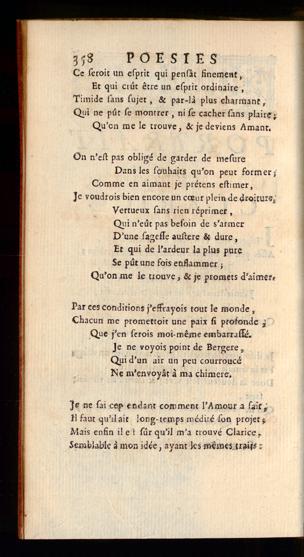 358 POESIES
Ce seroit un esprit qui pensât finement,
Et qui crût être un esprit ordinaire,
Timide sans sujet, & par-là plus charmant,
Qui ne pût se montrer, ni se cacher sans plaire;
Qu'on me le trouve, & je deviens Amant.
On n'est pas obligé de garder de mesure
Dans les souhaits qu'on peut former;
Comme en aimant je prétens estimer,
Je voudrois bien encore un cœur plein de droiture,
Vertueux sans rien réprimer,
Qui n'eût pas besoin de s'armer
D'une sagesse austere & dure,
Et qui de l'ardeur la plus pure
Se pût une fois enflammer;
Qu'on me le trouve, & je promets d'aimer.
Par ces conditions j'effrayois tout le monde,
Chacun me promettoit une paix si profonde,
Que j'en serois moi-même embarrassé.
Je ne voyois point de Bergere,
Qui d'un air un peu courroucé
Ne m'envoyât à ma chimere.
Je ne sai cep endant comment l'Amour a fait,
Il faut qu'il ait long-temps médité son projet;
Mais enfin il est sûr qu'il m'a trouvé Clarice,
Semblable à mon idée, ayant les mêmes traits: